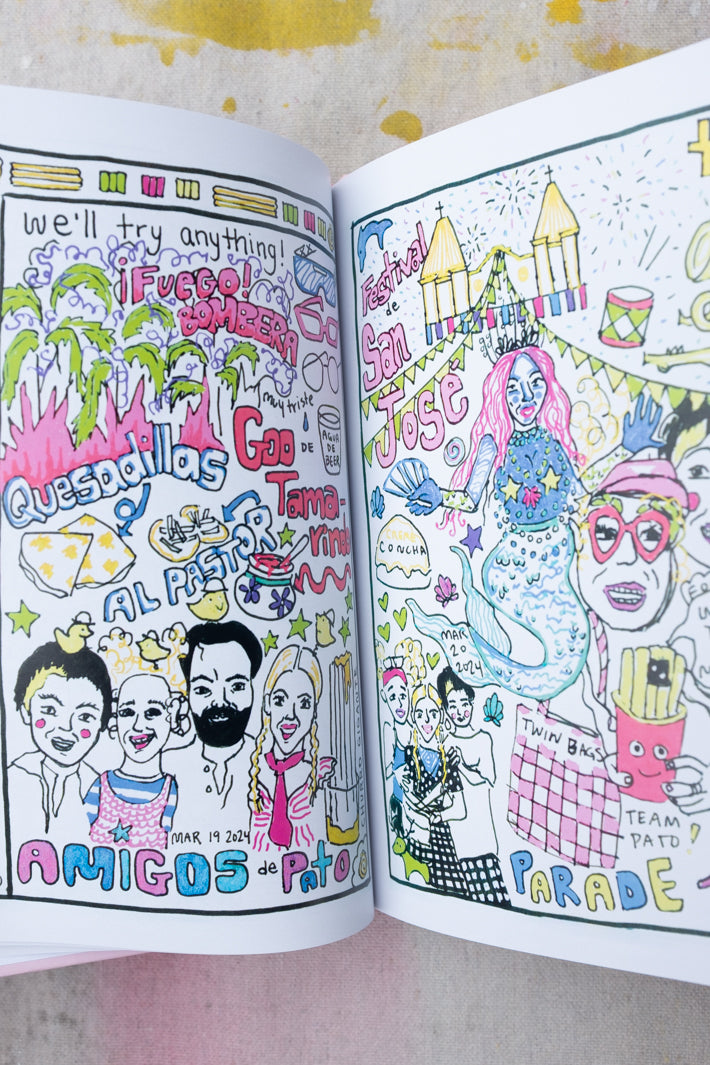 we'll try anything!
¡FUEGO!
BOMBERA
muy triste
Quesadillas
AL PASTOR
Goo
DE
Tama-
rindo
AGUA
DE
BEER
MAR 19 2024
AMIGOS de PAtO
Festival
de
San
José
CREME
CONCHA
MAR
20
2024
TWIN BAGS
TEAM
PATO!
PARADE